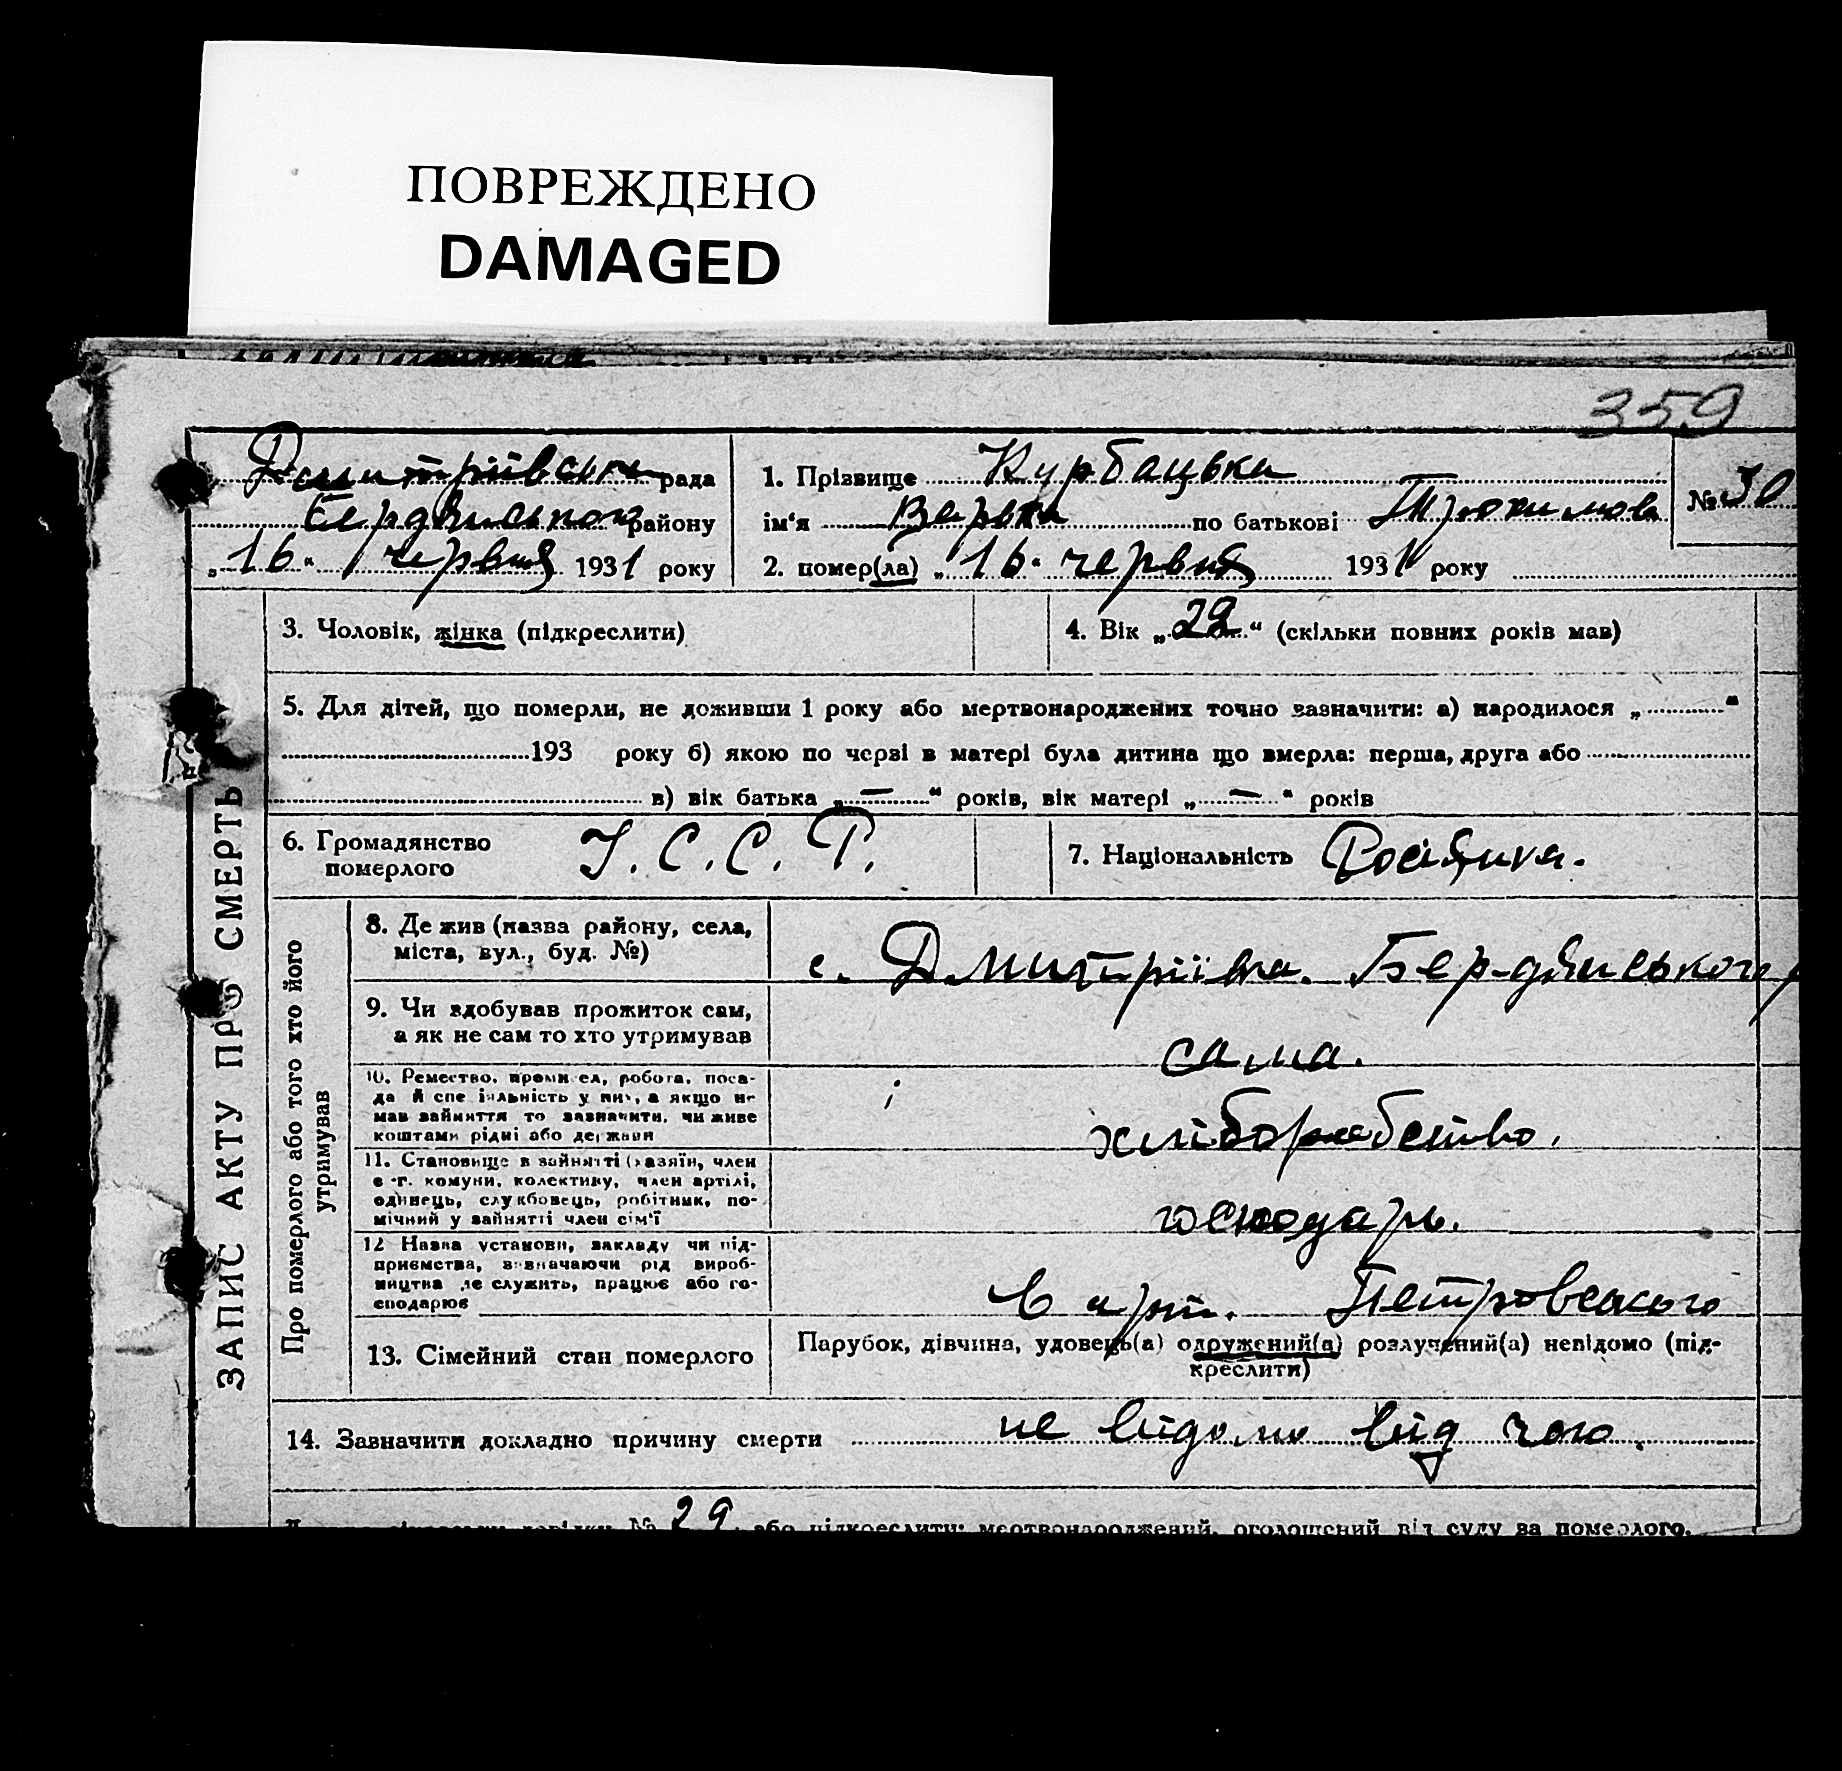 ПОВРЕЖДЕНО
DAMAGED
359
Дмитрівська рада
Бердянського району
„16“ червня 1931 року
1. Прізвище Курбацька
ім‘я по батькові Трохимова
№ 30
2. помер(ла) „16“ червня 1931 року
3. Чоловік, жінка (підкреслити)
4. Вік „29“ (скільки повних років мав)
5. Для дітей, що померли, не доживши 1 року або мертвонароджених точно зазначити: а) народилося „ “
193 року б) якою по черзі в матері була дитина що вмерла: перша, друга або
в) вік батька „—“ років, вік матері „—“ років
6. Громадянство
померлого
У. С. С. Р.
7. Національність Росіянка.
ЗАПИС АКТУ ПРО СМЕРТЬ
Про померлого або того хто його
утримував
8. Де жив (назва району, села,
міста, вул., буд. №)
с. Дмитріївка. Бердянського р
9. Чи здобував прожиток сам,
а як не сам то хто утримував
сама.
10. Ремество, промисел, робота, поса-
да й спеціяльність у них, а якщо не
мав зайняття то зазначити, чи живе
коштами рідні або держави
хліборобство.
11. Становище в зайнятті (хазяїн, член
с.-г. комуни, колективу, член артілі,
одинець, службовець, робітник, по-
мічний у зайнятті член сім‘ї
господарь.
12 Назва установи, закладу чи під-
приємства, визначаючи рід вироб-
ництва де служить, працює або го-
сподарює
в арт. Петровського
13. Сімейний стан померлого
Парубок, дівчина, удовець(а) одружений(а) розлучений(а) невідомо (під-
креслити)
14. Зазначити докладно причину смерти не відомо від чого.
№ 29, або підкреслити: мертвонароджений, оголошений від суду за померлого.